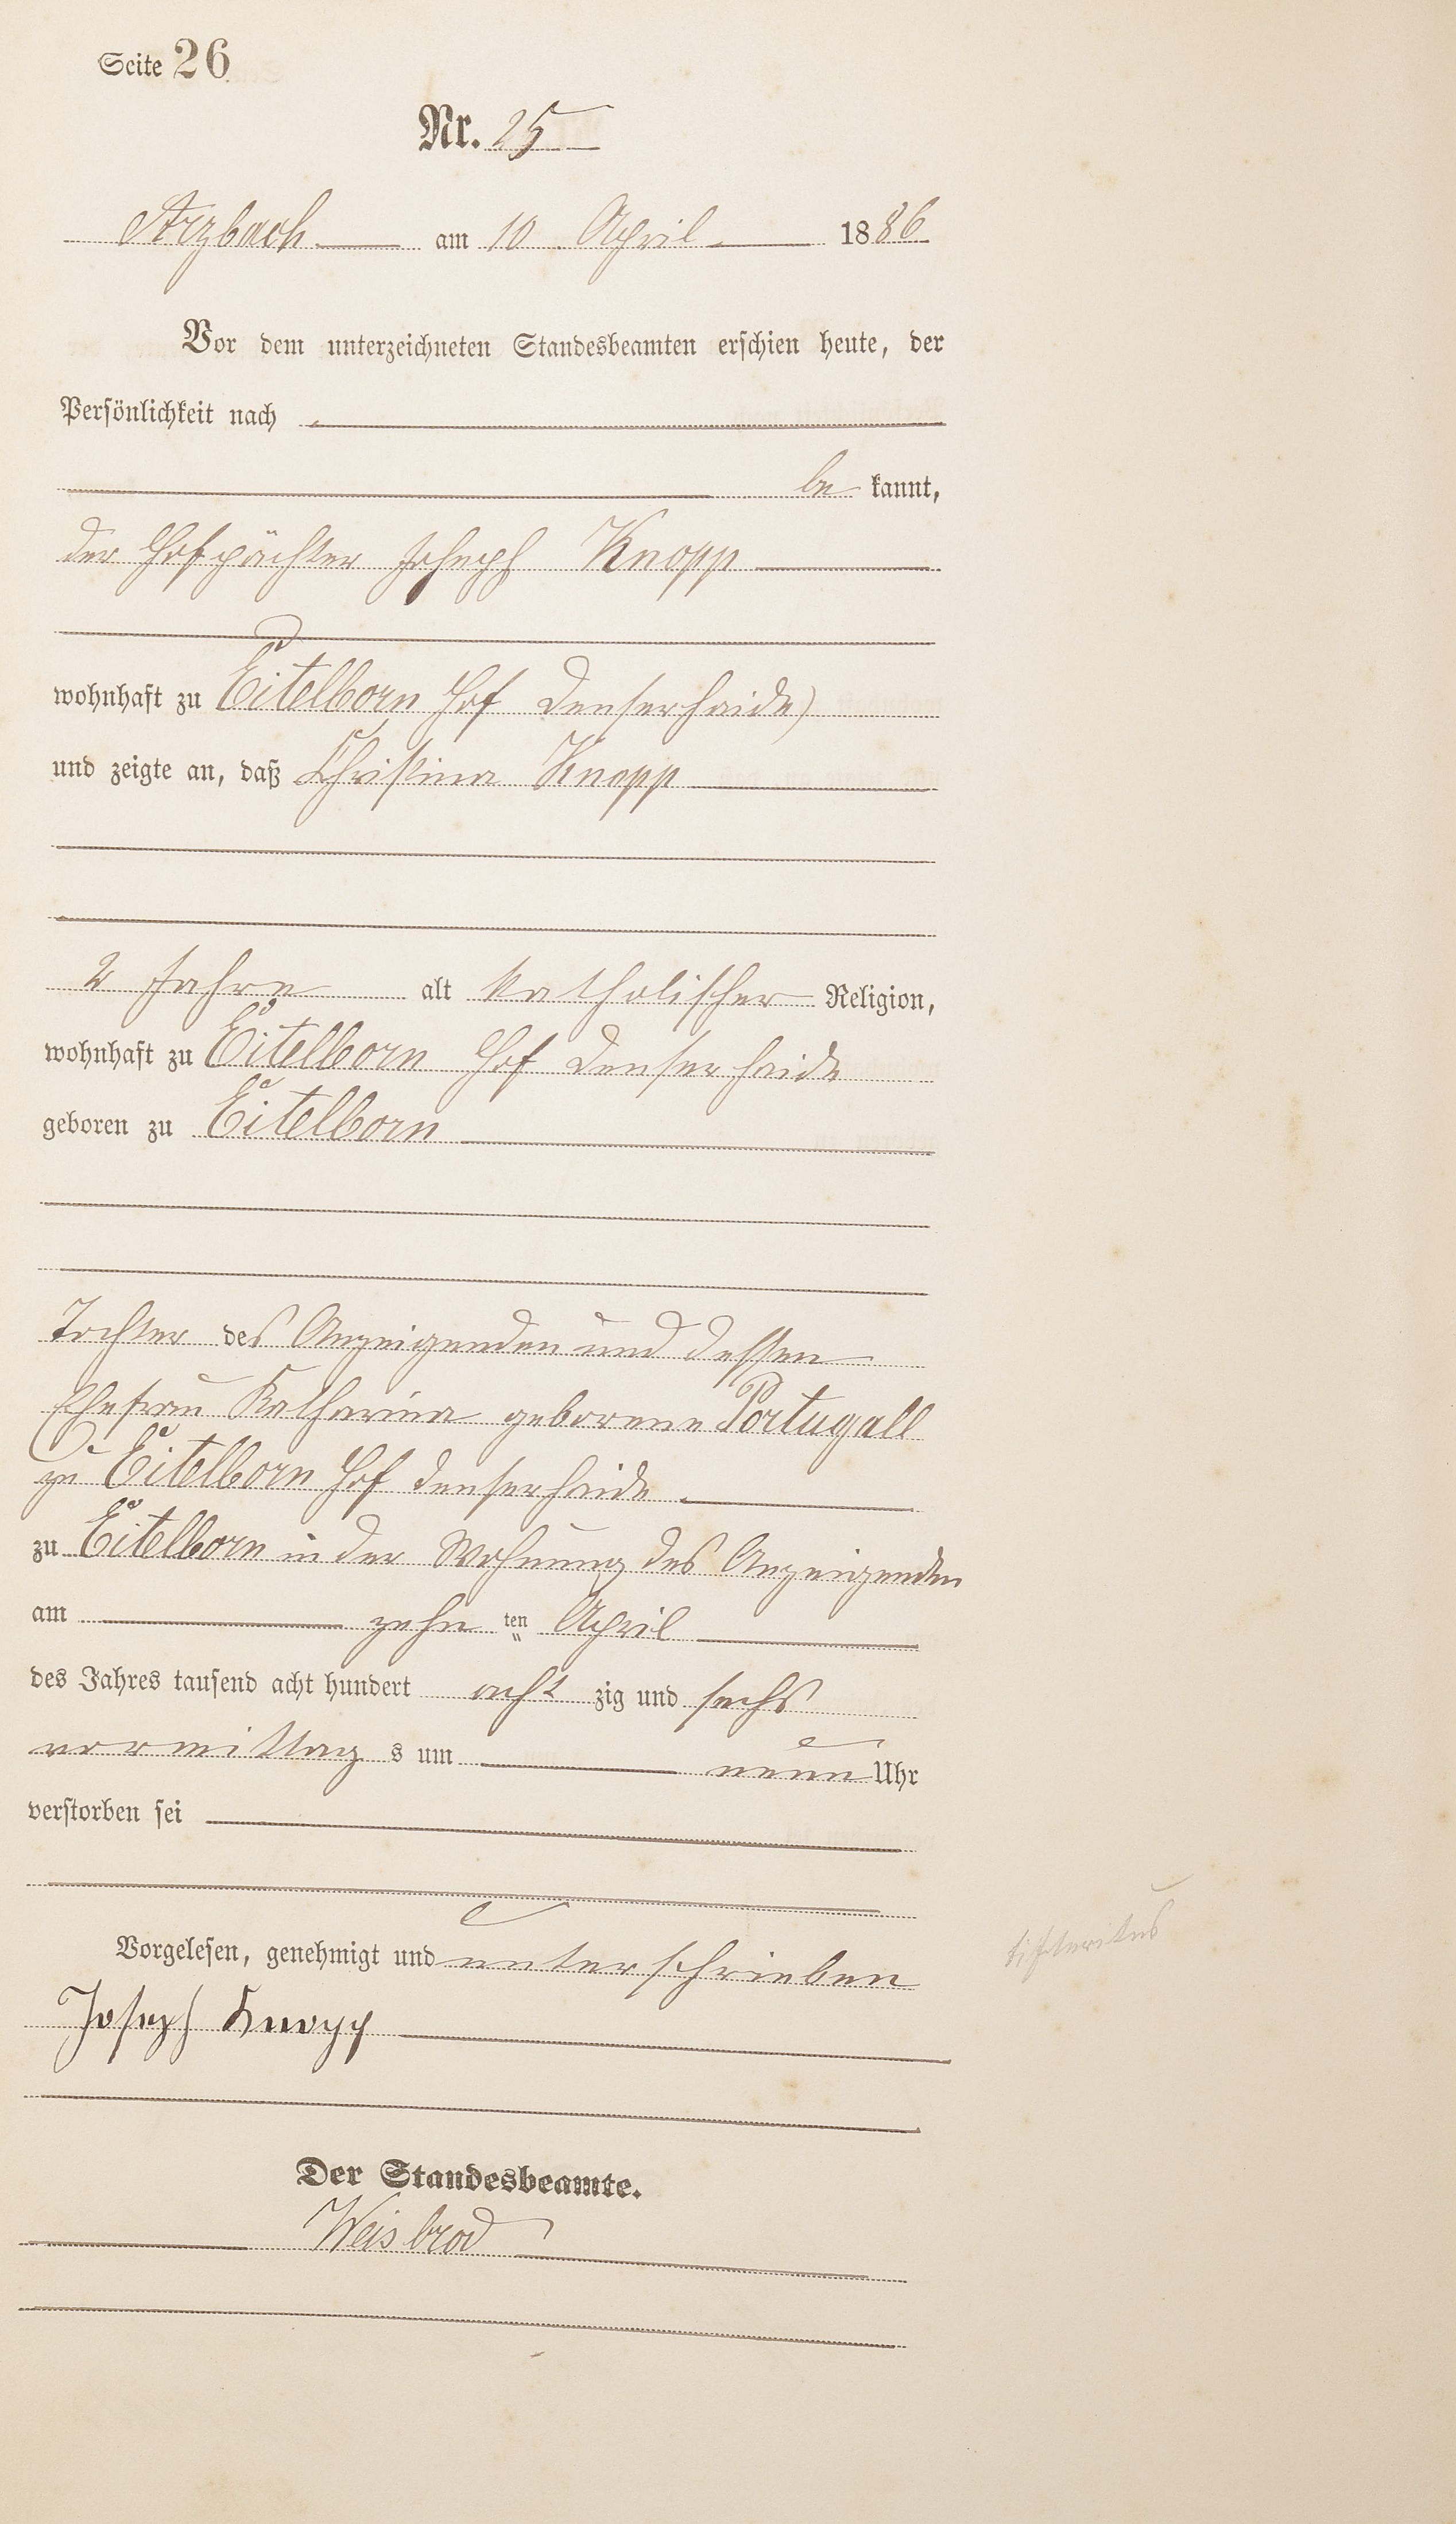 Seite 26
Nr. 25
Arzbach am 10 April 1886
Vor dem unterzeichneten Standesbeamten erschien heute, der
Persönlichkeit nach
be kannt,
der Hofpächter Joseph Knopp
wohnhaft zu Eitelborn Hof Denserhaide)
und zeigte an, daß Christina Knopp
2 Jahre alt katholischer Religion,
wohnhaft zu Eitelborn Hof Denserhaide
geboren zu Eitelborn
Tochter des Anzeigenden und dessen
Ehefrau Katharina geborene Portugall
zu Eitelborn Hof Denserhaide
zu Eitelborn in der Wohnung des Anzeigenden
am zehn ten April
des Jahres tausend acht hundert acht zig und sechs
vormittag s um neun Uhr
verstorben sei
Vorgelesen, genehmigt und unterschrieben
Joseph Knopp
Der Standesbeamte.
Weisbrod